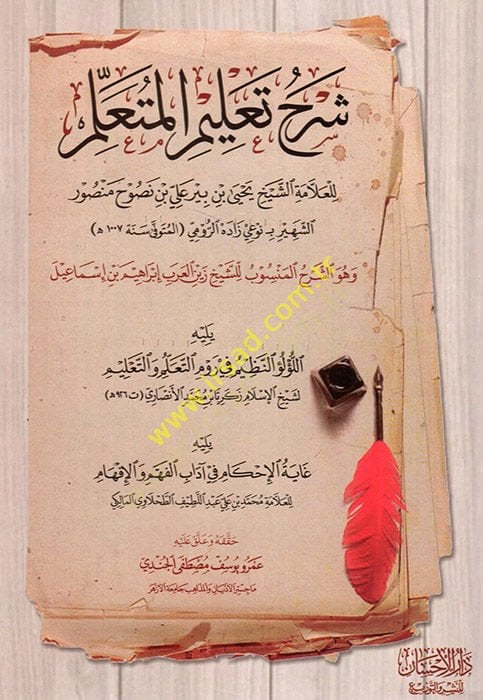 شَرْحُ تَعْلِيمِ المُتَعَلِّمِ
لِلعَلَّامَةِ الشَّيْخِ يَحْيَىٰ بْنِ بِير عَلِيِّ بْنِ نَصُوح مَنْصُور
الشَّهِيرِ بـ نَوْعِي زَادَه الرُّومِيِّ (المُتَوَفَّى سَنَةَ ١٠٠٧ هـ)
وَهُوَ الشَّرْحُ المَنْسُوبُ لِلشَّيْخِ زَيْنِ العَرَبِ إِبْرَاهِيمَ بْنِ إِسْمَاعِيلَ
يَلِيهِ
اللُّؤْلُؤُ النَّظِيمُ فِي رَوْمِ التَّعَلُّمِ وَالتَّعْلِيمِ
لِشَيْخِ الإِسْلَامِ زَكَرِيَّا بْنِ مُحَمَّدٍ الأَنْصَارِيِّ (ت ٩٢٦ هـ)
يَلِيهِ
غَايَةُ الإِحْكَامِ فِي آدَابِ الفَهْمِ وَالإِفْهَامِ
لِلعَلَّامَةِ مُحَمَّدِ بْنِ عَلِيِّ عَبْدِ اللَّطِيفِ الطَّحْلَاوِيِّ المَالِكِيِّ
حَقَّقَهُ وَعَلَّقَ عَلَيْهِ
عَمْرُو يُوسُف مُصْطَفَى الجُنْدِي
مَاجِسْتِير الأَدْيَان وَالمَذَاهِب جَامِعَة الأَزْهَر
دَارُ الإِحْسَان
لِلنَّشْرِ وَالتَّوْزِيعِ
www.irsad.com.tr